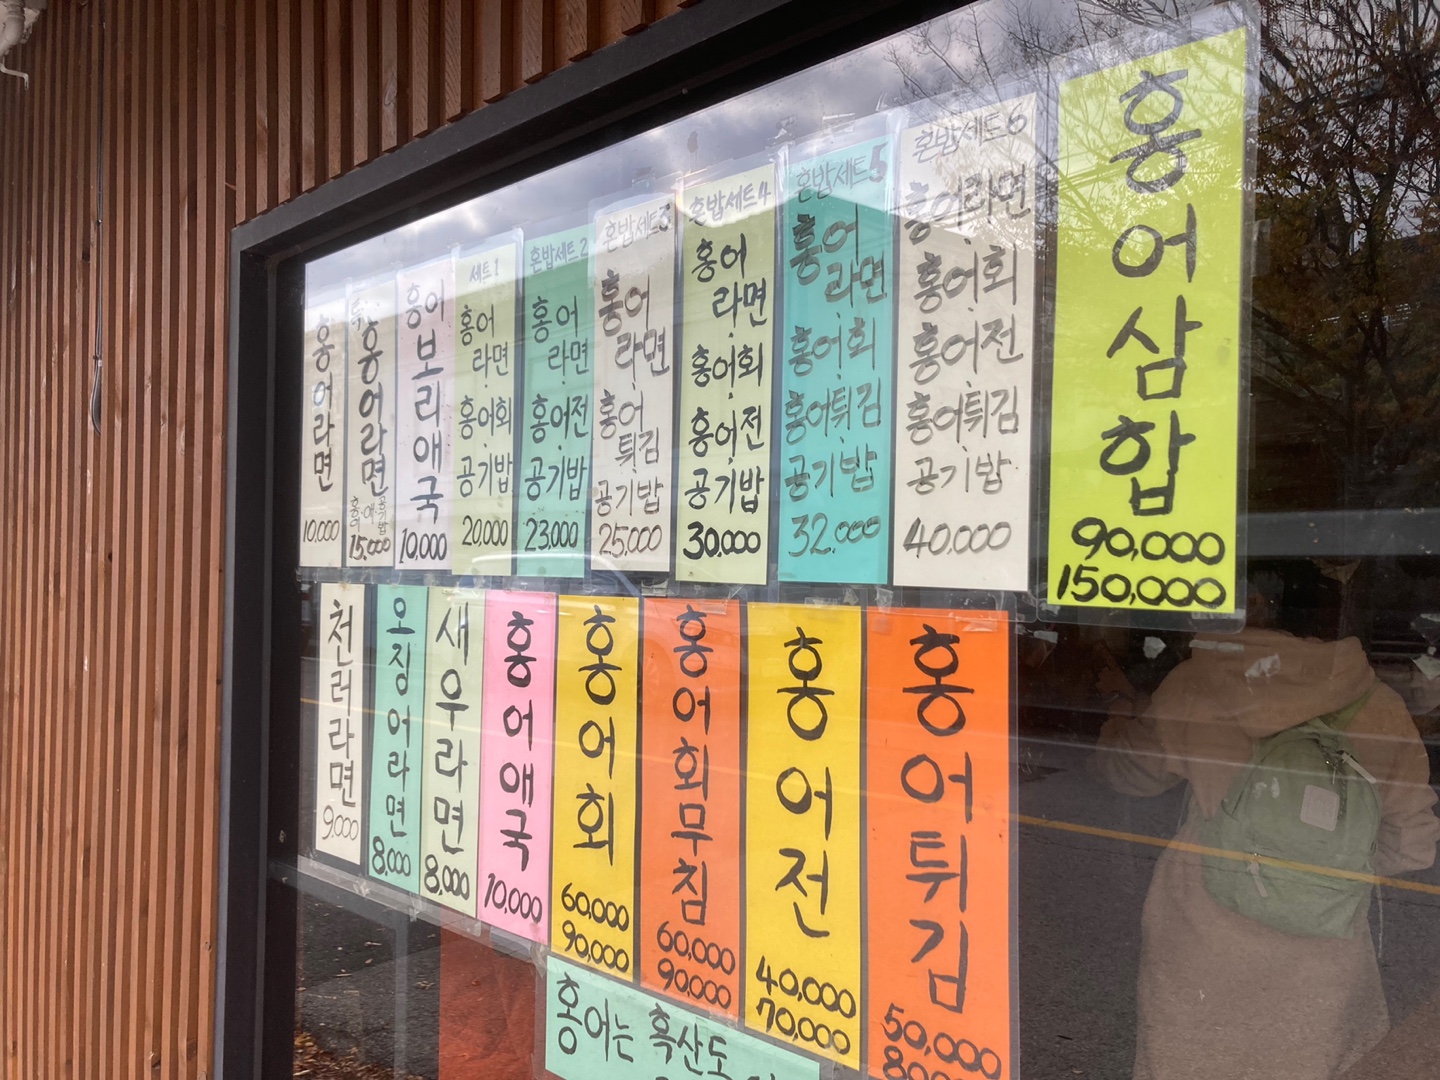 홍어라면
10,000
특
홍어라면
홍어애
공기밥
15,000
홍어보리애국
10,000
세트1
홍어
라면
홍어회
공기밥
20,000
혼밥세트2
홍어
라면
홍어전
공기밥
23,000
혼밥세트3
홍어
라면
홍어
튀김
공기밥
25,000
혼밥세트4
홍어
라면
홍어회
홍어전
공기밥
30,000
혼밥세트5
홍어
라면
홍어회
홍어튀김
공기밥
32,000
혼밥세트6
홍어라면
홍어회
홍어전
홍어튀김
공기밥
40,000
홍어삼합
90,000
150,000
천러라면
9,000
오징어라면
8,000
새우라면
8,000
홍어애국
10,000
홍어회
60,000
90,000
홍어회무침
60,000
90,000
홍어전
40,000
70,000
홍어튀김
50,000
홍어는 흑산도